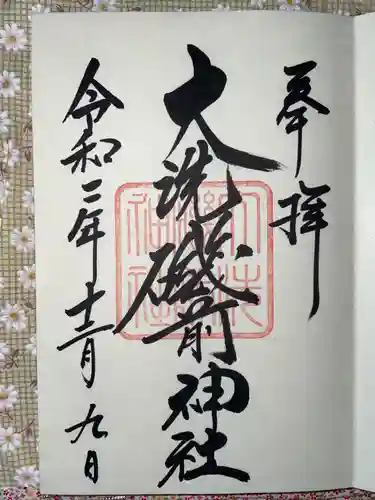 奉拝
大洗磯前神社
令和二年十二月九日